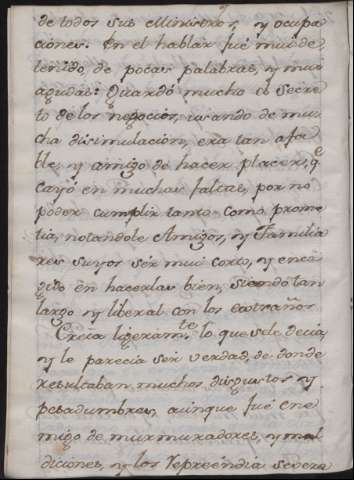 de todos sus Ministros, y ocupa
ciones. En el hablar fué mui de
tenido, de pocas palabras, y mui
agudas: Guardó mucho el secre
to de los negocios, usando de mu
cha disimulacion, era tan afa
ble, y amigo de hacer placer, q.e
cayó en muchas faltas, por no
poder cumplir tanto como prome
tia, notandole Amigos, y Familia
res suyos ser mui corto, y enco
gido en hacerlas bien, siendo tan
largo y liberal con los extraños
Creia ligeram.te lo que se le decia,
y le parecia ser verdad, de donde
resultaban muchos disgustos y
pesadumbres, aunque fué ene
migo de murmuradores, y mal
diciones, y los reprendia severa